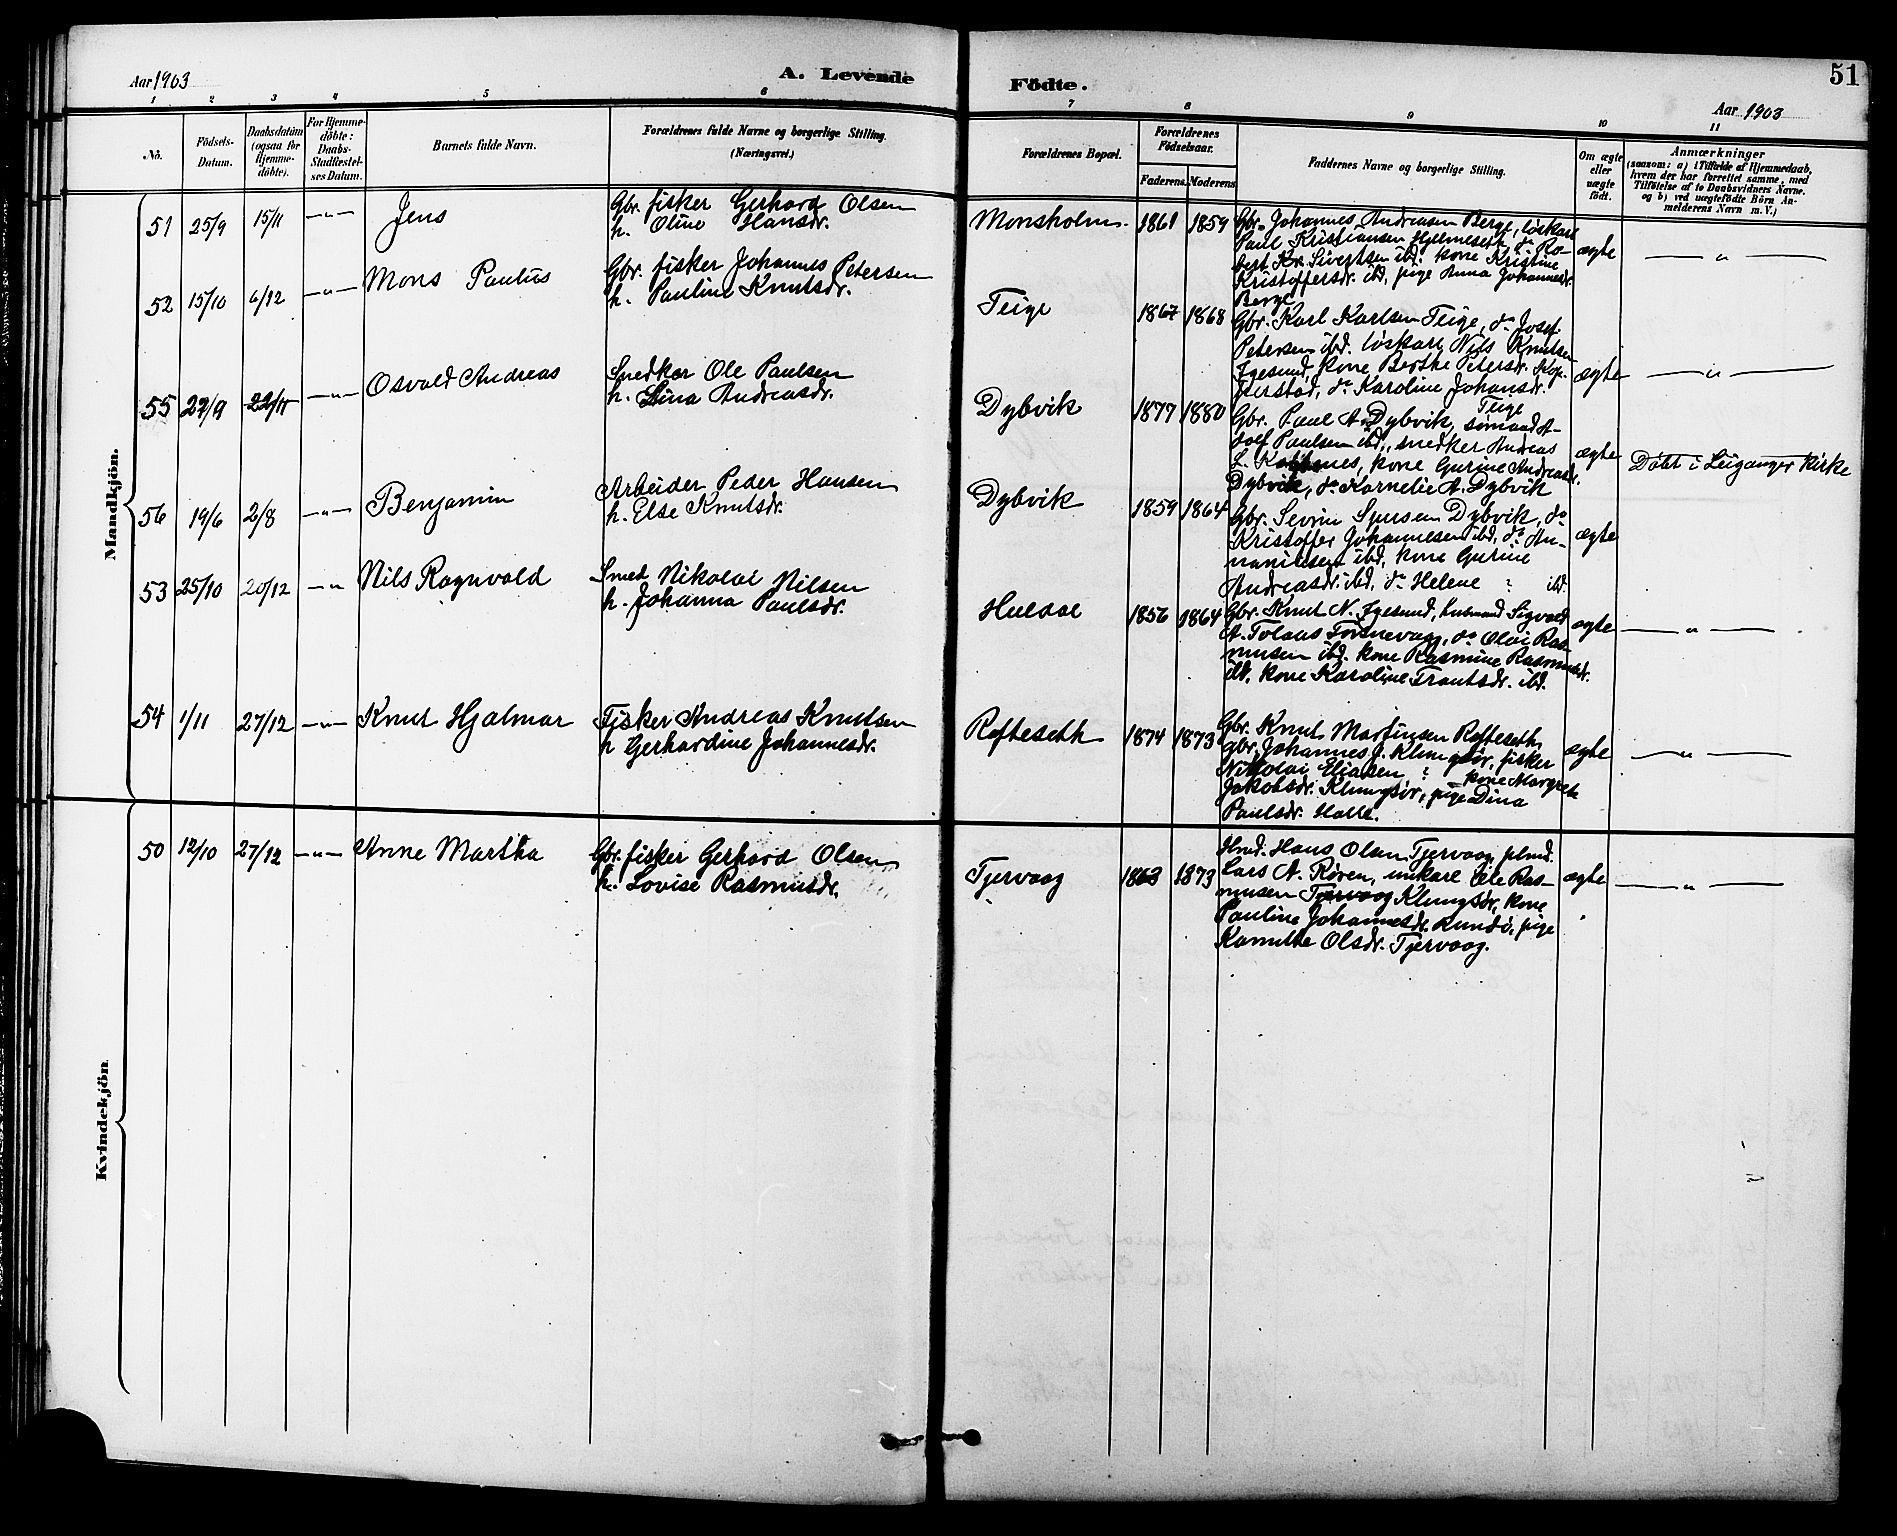 Aar 1903
A. Levende
Födte.
51
Aar 1903
1 2 3 4 5 6 7 8 9 10 11
No.
Födsels-Datum.
Daabsdatum (ogsaa for Hjemme-döbte).
For Hjemme-döbte: Daabs-Stadfæstel-ses Datum.
Barnets fulde Navn.
Forældrenes fulde Navne og borgerlige Stilling. (Næringsvei.)
Forældrenes Bopæl.
Forældrenes Födselsaar.
Faderens. Moderens.
Faddernes Navne og borgerlige Stilling.
Om ægte eller uægte födt.
Anmærkninger
(saasom: a) i Tilfælde af Hjemmedaab, hvem der har forrettet samme, med Tilföielse af to Daabsvidners Navne. og b) ved uægtefödte Börn An-melderens Navn m. V.)
Mandkjön.
51 25/9 15/11 —„— Jens
Gbr. fisker Gerhard Olsen
h. Oline Hansdr.
Monsholm 1861 1859
Gbr. Johannes Andreasen Berge, löskarl
Paul Kristiansen Hjelmeseth, do Ro-
bert Kr. Sivertsen ibd. kone Kristine
Kristoffersdr. ibd, pige Anna Johannesdr.
Berge
ægte — „ —
52 15/10 6/12 —„— Mons Paulus
Gbr. fisker Johannes Petersen
h. Pauline Knutsdr.
Teige 1867 1868
Gbr. Karl Karlsen Teige, do Josef
Petersen ibd. löskarl Nils Knutsen
Igesund, kone Berthe Petersdr. Skog-
jerstad, do Karoline Johansdr.
Teige
ægte — „ —
55 27/9 22/11 —„— Osvald Andreas
Snedker Ole Paulsen
h. Stina Andreasdr.
Dybvik 1877 1880
Gbr. Paul A. Dybvik, sömand A-
dolf Paulsen ibd., snedker Andreas
L. kone Gurine Andreasdr.
Dybvik, do Kornelie A. Dybvik
ægte Döbt i Leiganger kirke
56 19/6 2/8 —„— Benjamin
Arbeider Peder Hansen
h. Else Knutsdr.
Dybvik 1859 1864
Gbr. Sevrin Dybvik, do
Kristoffer Johannesen ibd, do An-
ibd, kone Gurine
Andreasdr. ibd, do Helene „ ibd.
ægte
53 25/10 20/12 —„— Nils Ragnvald
Smed Nikolai Nilsen
h. Johanna Paulsdr.
Huldal 1856 1864
Gbr. Knut N. Igesund, husmand Sigvald
A. Tolaas Torsnevaag, do Olai Ras-
musen ibd. kone Rasmine Rasmusdr.
ibd, kone Karoline ibd.
ægte — „ —
54 1/11 27/12 —„— Knut Hjalmar
Fisker Andreas Knutsen
h Gerhardine Johannesdr.
Rofteseth 1874 1873
Gbr. Knut Martinsen Rofteseth,
gbr. Johannes J. Klungsör, fisker
Nikolai Eliasen „ kone Margrete
Jakobsdr. Klungsör, pige Dina
Paulsdr.
ægte — „ —
Kvindekjön
50 12/10 27/12 —„— Anne Martha
Gbr. fisker Gerhard Olsen
h. Lovise Rasmusdr.
Tjervaag 1863 1873
Hmd. Hans Olsen Tjervaag, plmd.
Lars A. Rören, unkarl Ole Ras-
musen Tjervaag Klungsör, kone
Pauline Johannesdr. Rundö, pige
Kamilla Olsdr. Tjervaag.
ægte — „ —